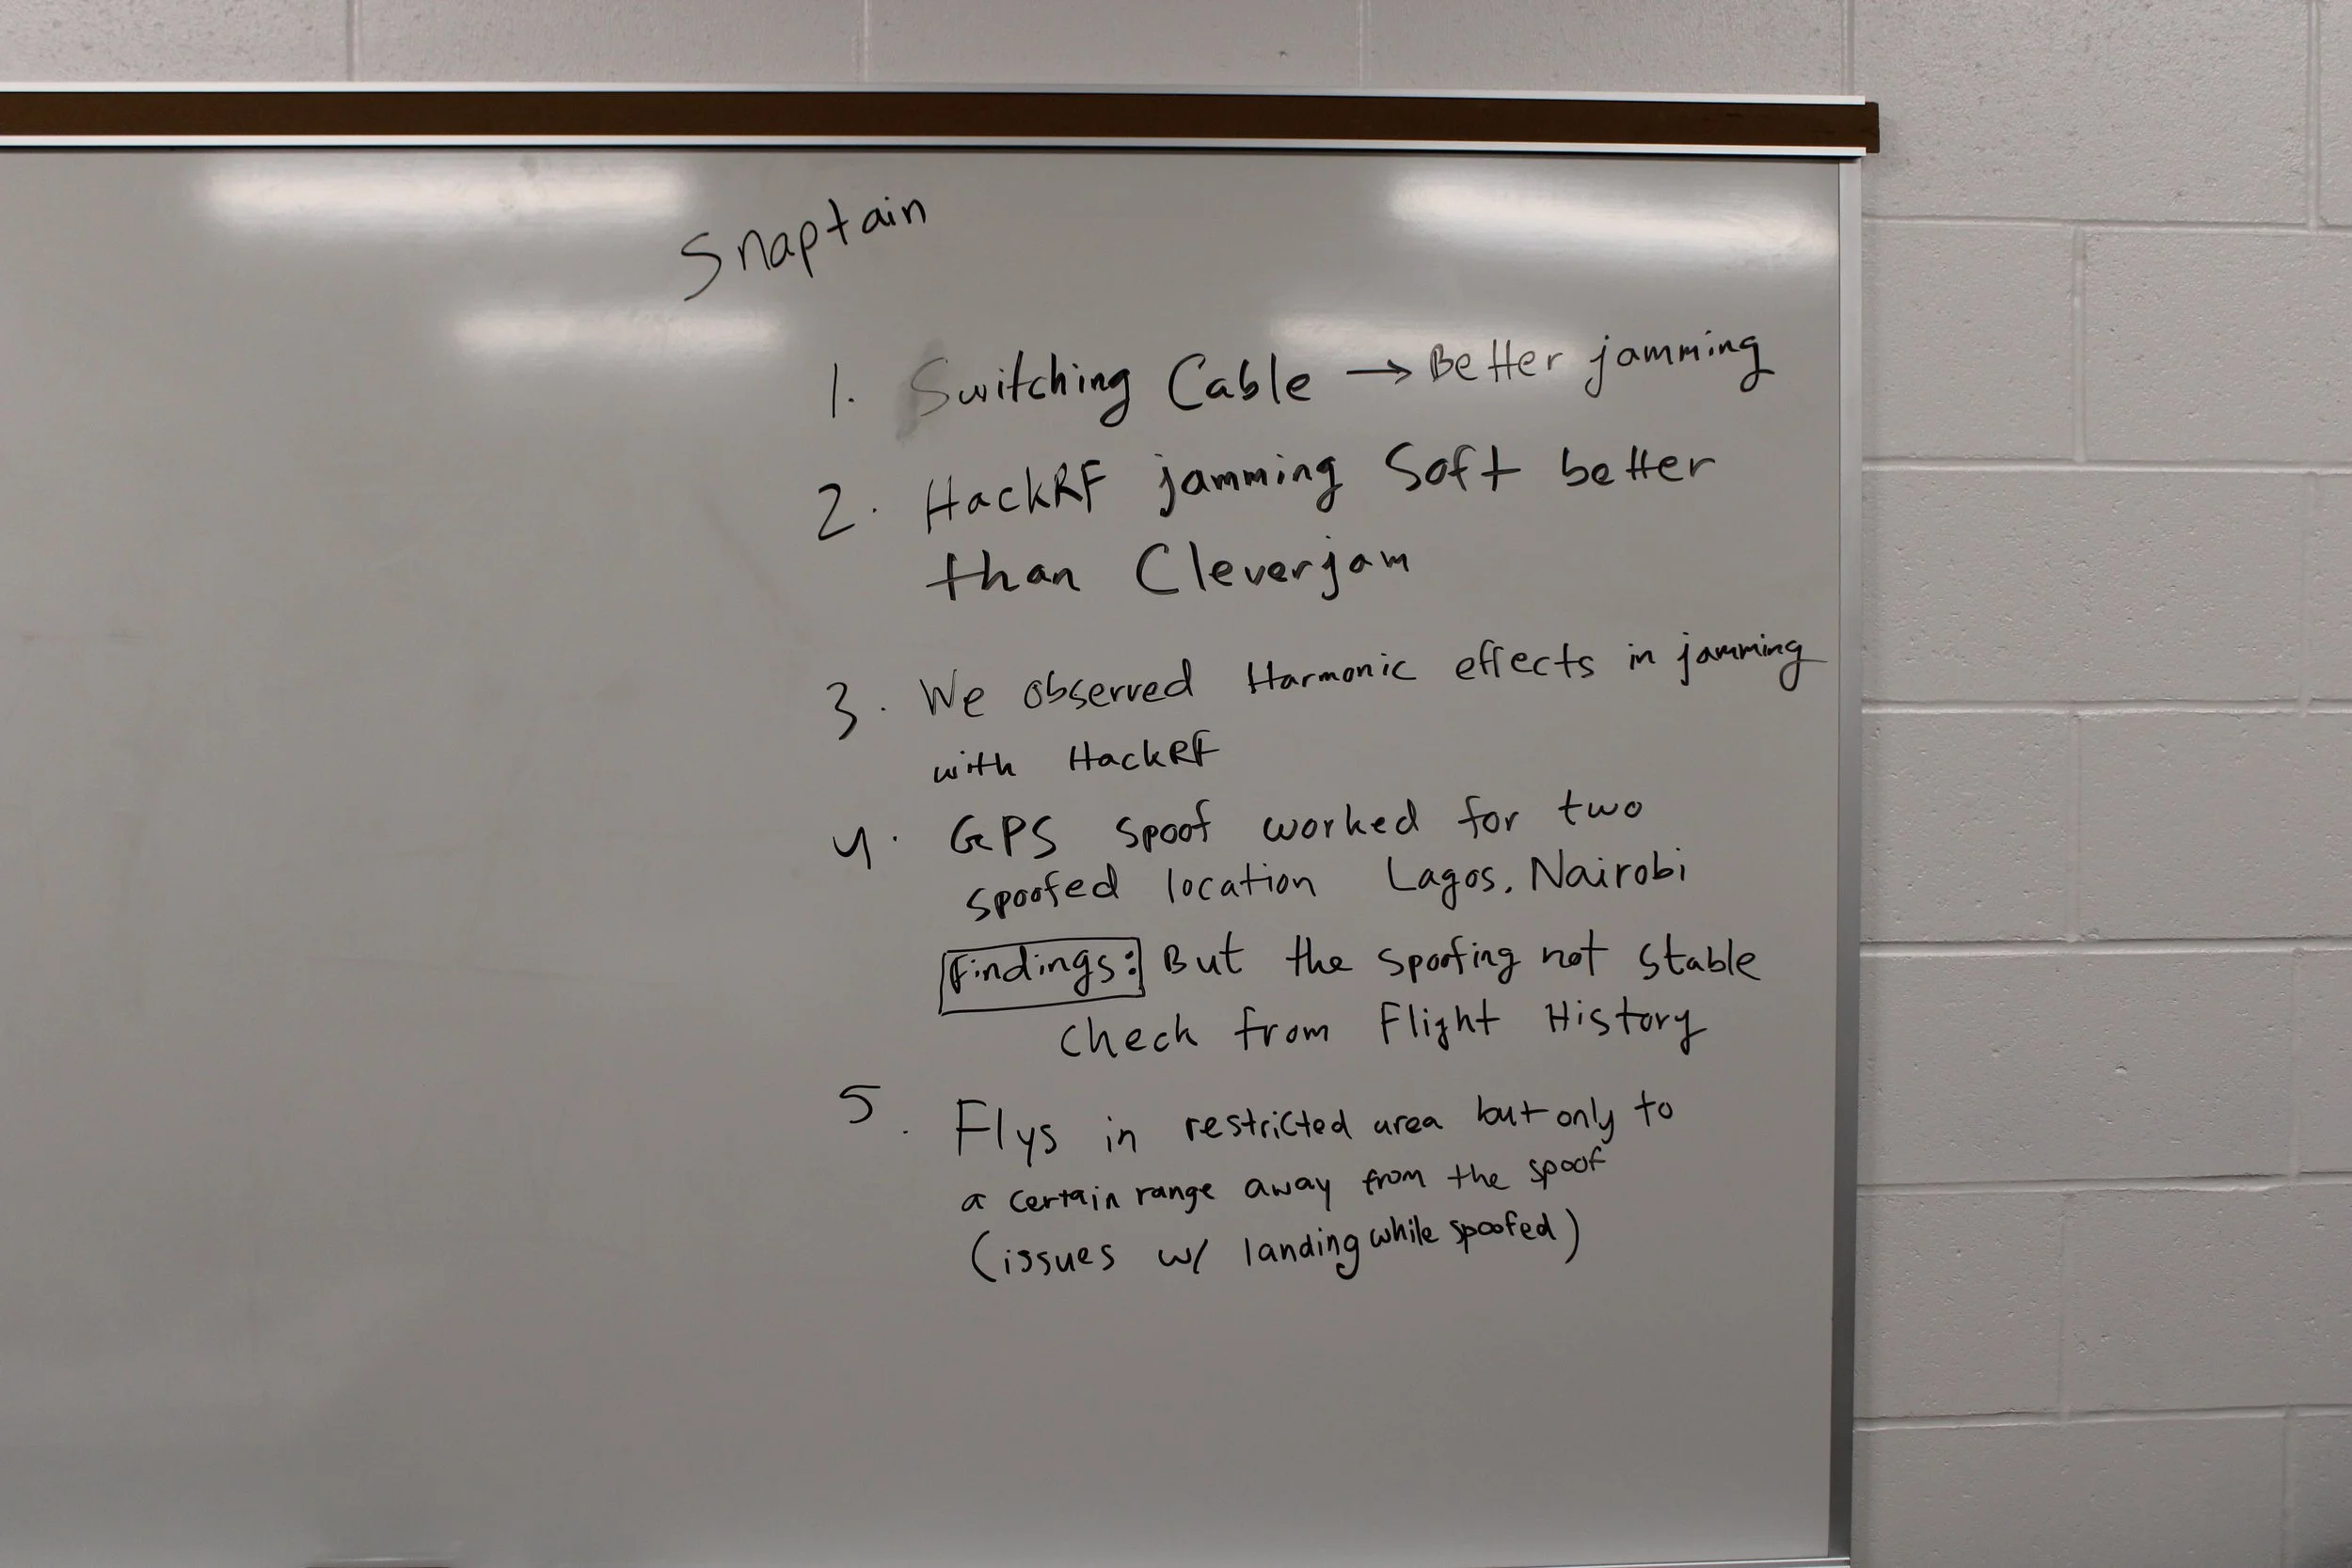 Snaptain
1. Switching Cable → Better jamming
2. HackRF jamming Soft better
than Cleverjam
3. We observed Harmonic effects in jamming
with HackRF
4. GPS spoof worked for two
spoofed location Lagos, Nairobi
Findings: But the spoofing not stable
check from Flight History
5. Flys in restricted area but only to
a certain range away from the spoof
(issues w/ landing while spoofed)